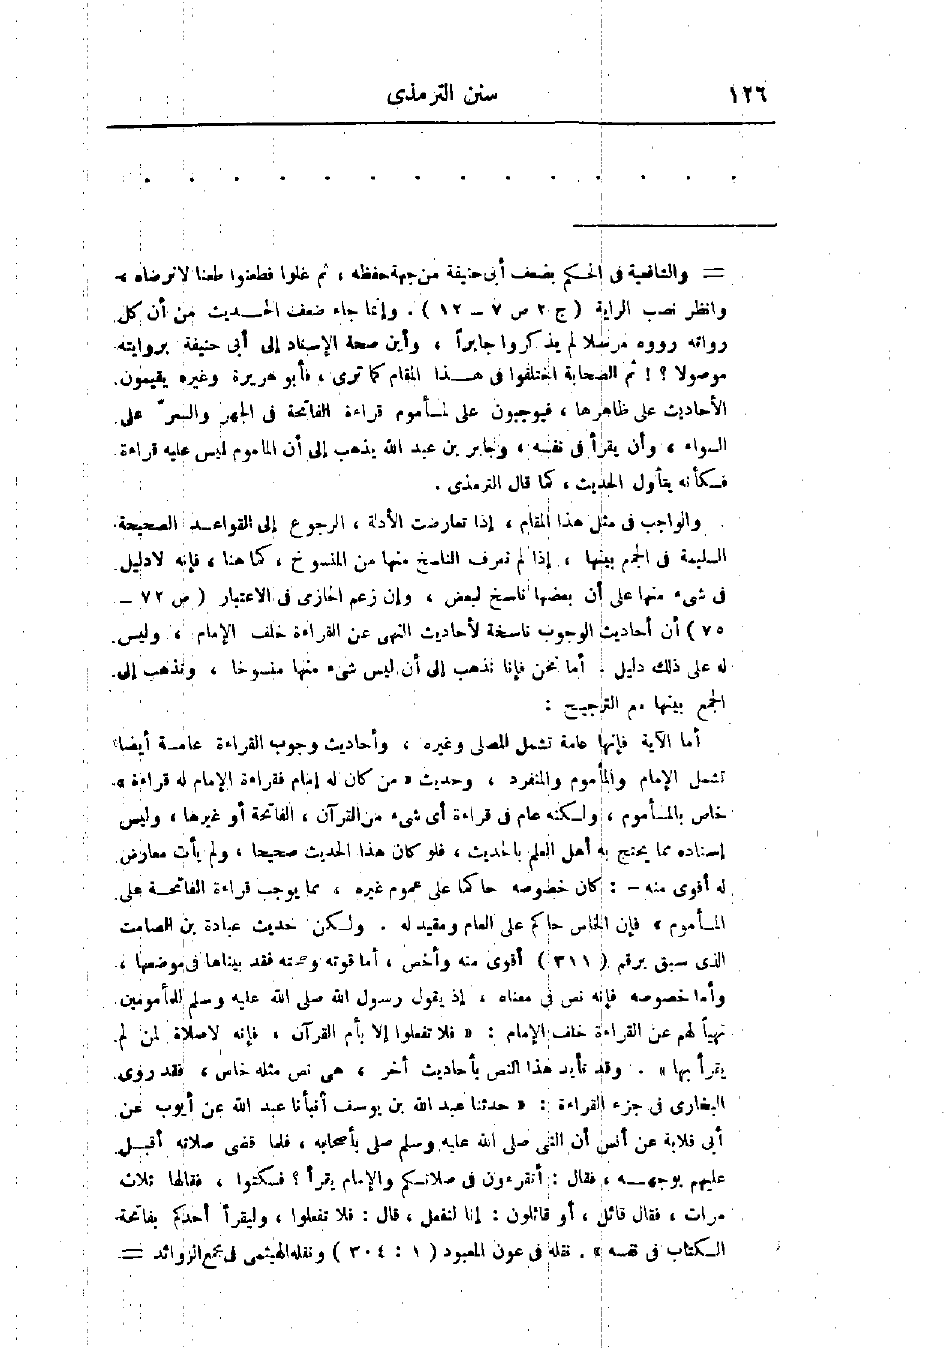 ١٢٦
سنن الترمذى
= والشافعية فى الحكم بضعف أبى حنيفة من جهة حفظه ، ثم غلوا فطعنوا طعنا لانرضاه ،
وانظر نصب الراية ( ج ٢ ص ٧ – ١٢ ) . وإنما جاء ضعف الحديث من أن كل
رواته رووه مرسلا لم يذكروا جابراً ، وأين صحة الإسناد إلى أبى حنيفة بروايته
موصولا ؟ ! ثم الصحابة اختلفوا فى هذا المقام كما ترى ، فأبو هريرة وغيره يقيمون
الأحاديث على ظاهرها ، فيوجبون على المأموم قراءة الفاتحة فى الجهر والسرّ على
السواء ، وأن يقرأ فى نفسه ، وجابر بن عبد الله يذهب إلى أن المأموم ليس عليه قراءة
فكأنه يتأول الحديث ، كما قال الترمذى .
والواجب فى مثل هذا المقام ، إذا تعارضت الأدلة ، الرجوع إلى القواعد الصحيحة
السليمة فى الجمع بينها ، إذا لم نعرف الناسخ منها من المنسوخ ، كما هنا ، فإنه لادليل
فى شىء منها على أن بعضها ناسخ لبعض ، وإن زعم الحازى فى الاعتبار ( ص ٧٢ –
٧٥ ) أن أحاديث الوجوب ناسخة لأحاديث النهى عن القراءة خلف الإمام ، وليس
له على ذلك دليل . أما نحن فإنا نذهب إلى أن ليس شىء منها منسوخا ، ونذهب إلى
الجمع بينها مع الترجيح :
أما الآية فإنها عامة تشمل المصلى وغيره ، وأحاديث وجوب القراءة عامة أيضا
تشمل الإمام والمأموم والمنفرد ، وحديث « من كان له إمام فقراءة الإمام له قراءة »
خاص بالمأموم ، ولكنه عام فى قراءة أى شىء من القرآن ، الفاتحة أو غيرها ، وليس
إسناده مما يحتج به أهل العلم بالحديث ، فلو كان هذا الحديث صحيحا ، ولم يأت معارض
له أقوى منه – : كان خصوصه حاكما على عموم غيره ، مما يوجب قراءة الفاتحة على
المأموم ، فإن الخاص حاكم على العام ومقيد له . ولكن حديث عبادة بن الصامت
الذى سبق برقم ( ٣١١ ) أقوى منه وأخص ، أما قوته وصحته فقد بيناها فى موضعها ،
وأما خصوصه فإنه نص فى معناه ، إذ يقول رسول الله صلى الله عليه وسلم للمأمومين
نهياً لهم عن القراءة خلف الإمام : « فلا تفعلوا إلا بأم القرآن ، فإنه لاصلاة لمن لم
يقرأ بها » . وقد تأيد هذا النص بأحاديث أخر ، هى نص مثله خاص ، فقد روى
البخارى فى جزء القراءة : « حدثنا عبد الله بن يوسف أنبأنا عبد الله عن أيوب عن
أبى قلابة عن أنس أن النبى صلى الله عليه وسلم صلى بأصحابه ، فلما قضى صلاته أقبل
عليهم بوجهه ، فقال : أتقرءون فى صلاتكم والإمام يقرأ ؟ فسكتوا ، فقالها ثلاث
مرات ، فقال قائل ، أو قائلون : إنا لنفعل ، قال : فلا تفعلوا ، وليقرأ أحدكم بفاتحة
الكتاب فى نفسه » . نقله فى عون المعبود ( ١ : ٣٠٤ ) ونقله الهيثمى فى مجمع الزوائد =